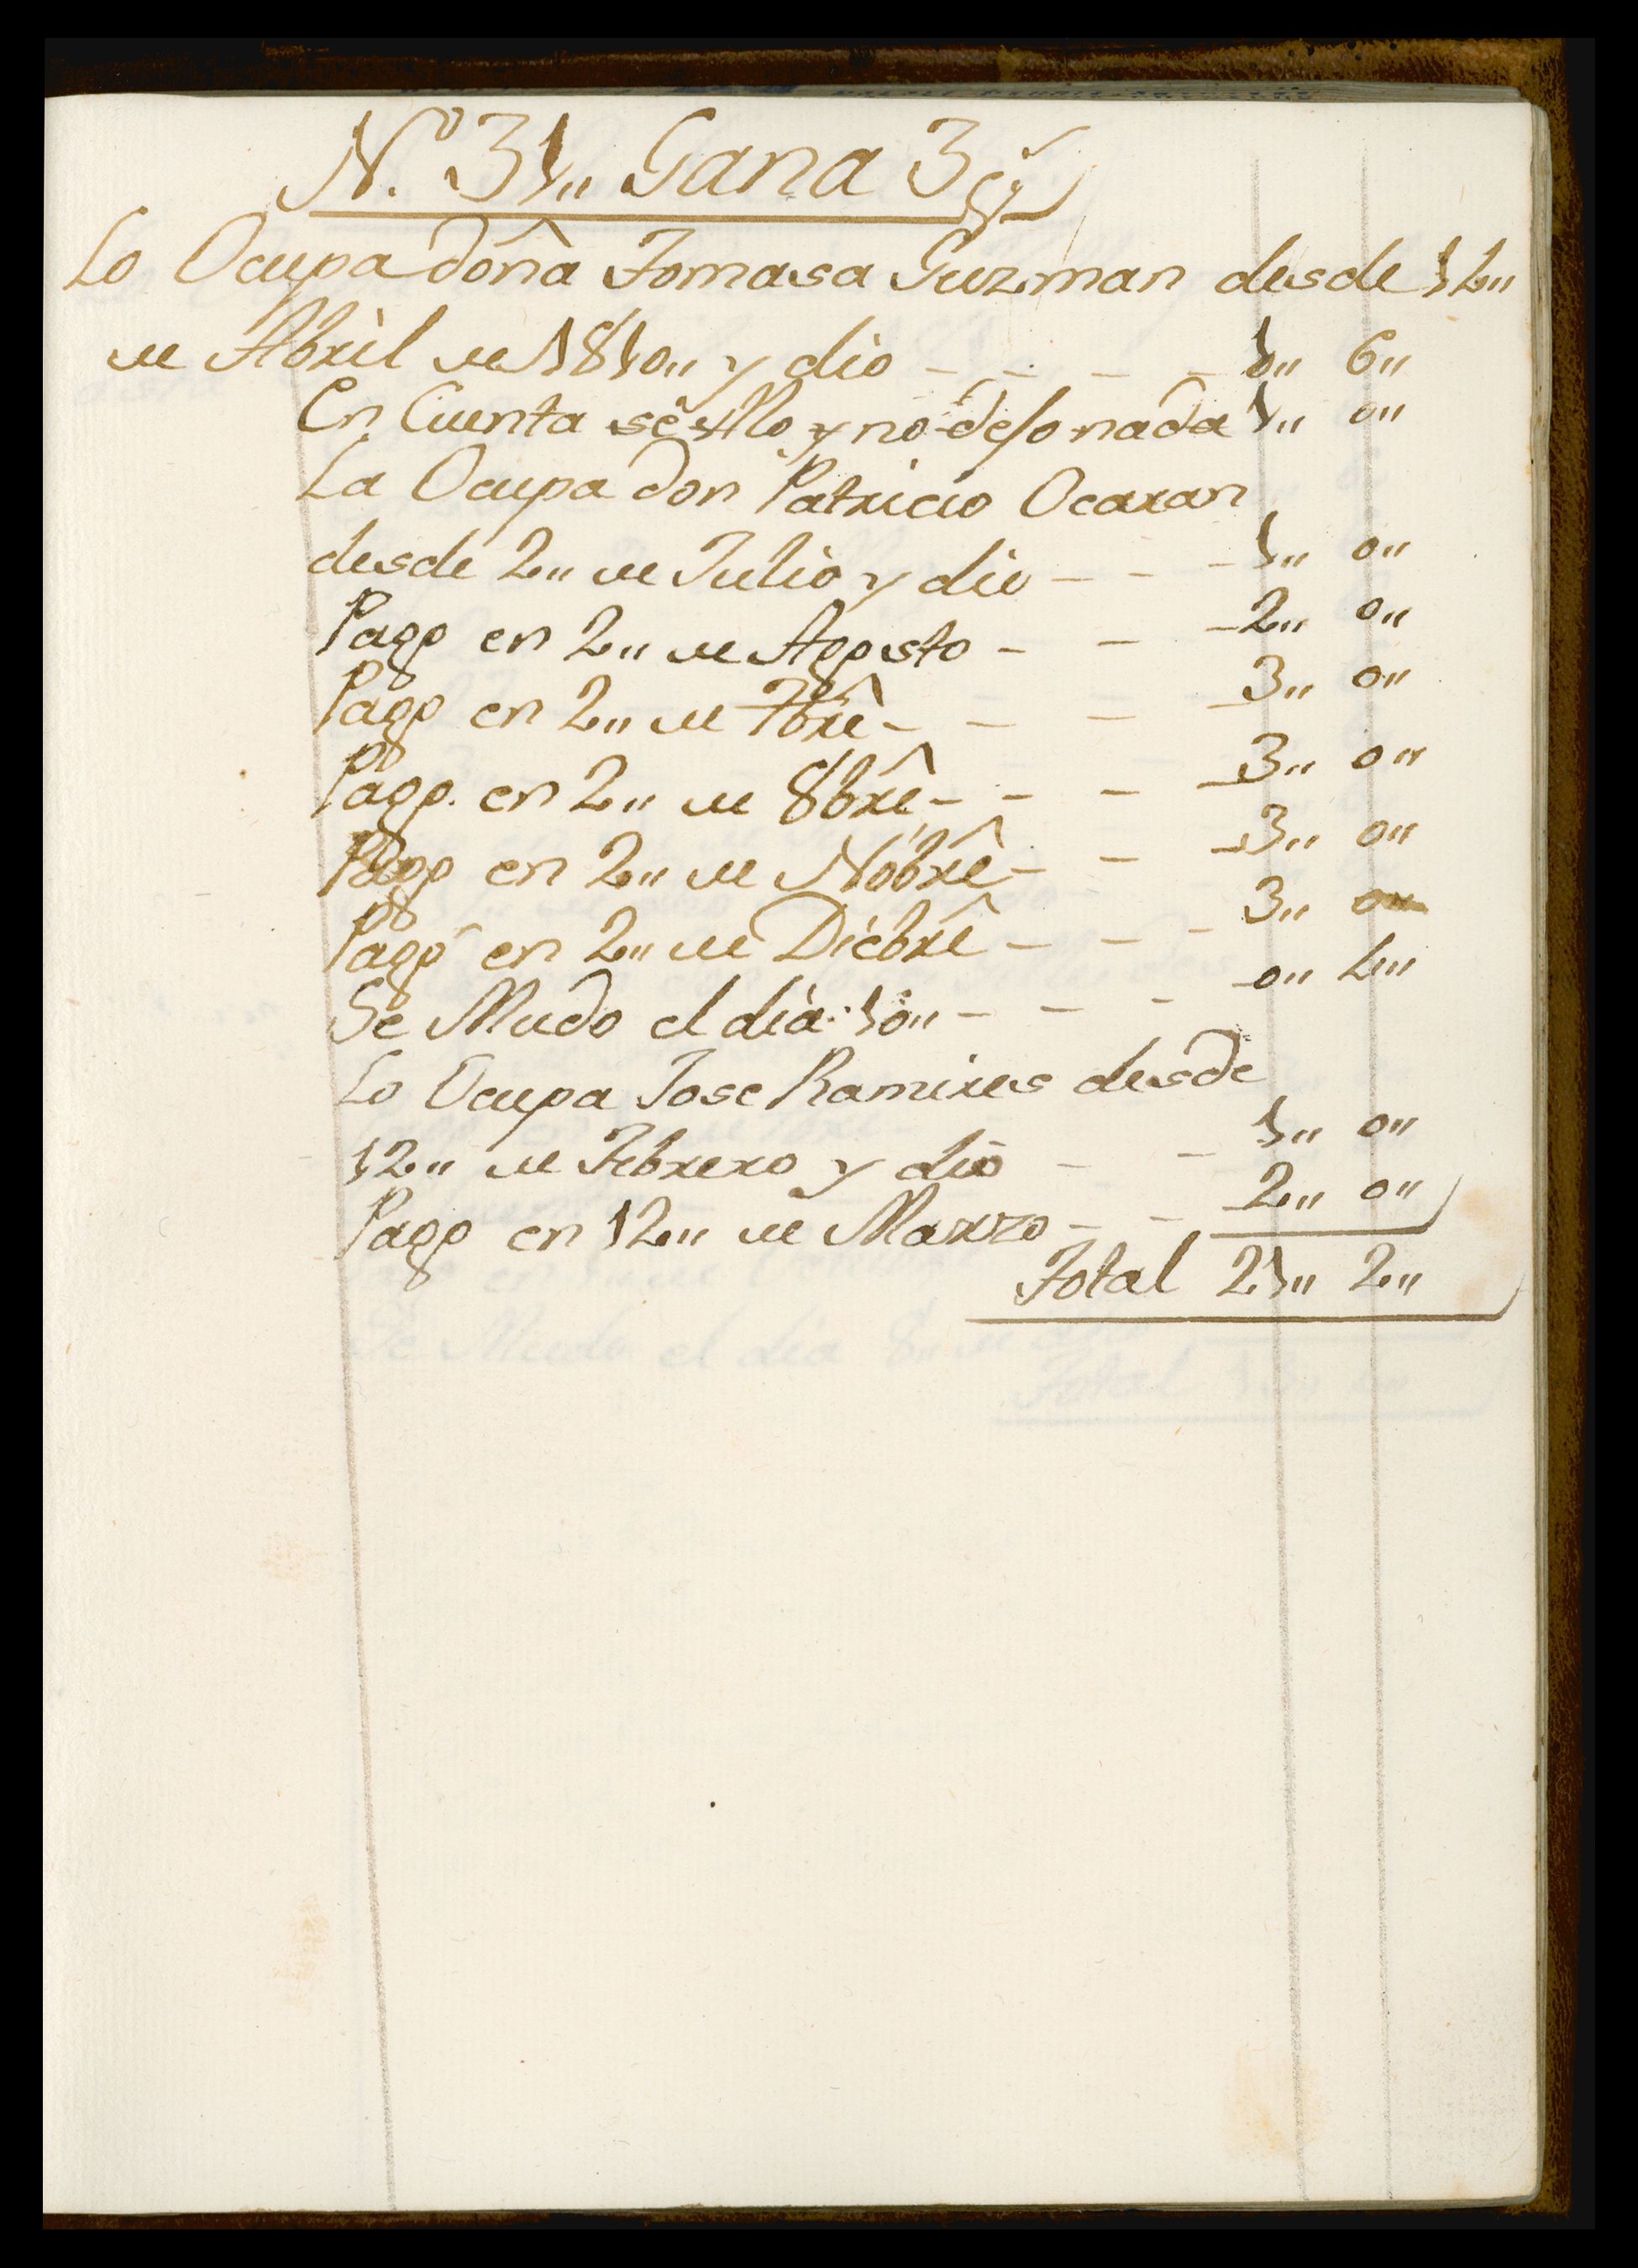 N.º 31,, Gana 3 p
Lo Ocupa doña Tomasa Guzman desde 12,,
de Abril de 1810,, y dio - - - - 0,, 6,,
En Cuenta y no dejo nada 1,, 0,,
La Ocupa don Patricio Ocaran
desde 2,, de Julio y dio - - - 1,, 0,,
Pago en 2,, de Agosto - - - 2,, 0,,
Pago en 2,, de 7bre - - - 3,, 0,,
Pago en 2,, de 8bre - - - 3,, 0,,
Pago en 2,, de Nobre - - - 3,, 0,,
Pago en 2,, de Diebre - - - 3,, 0,,
Se Mudo el dia 10,, - - - 0,, 4,,
Lo Ocupa Jose Ramires desde
12,, de Febrero y dio - - 1,, 0,,
Pago en 12,, de Marzo - - 2,, 0,,
Total 21,, 2,,